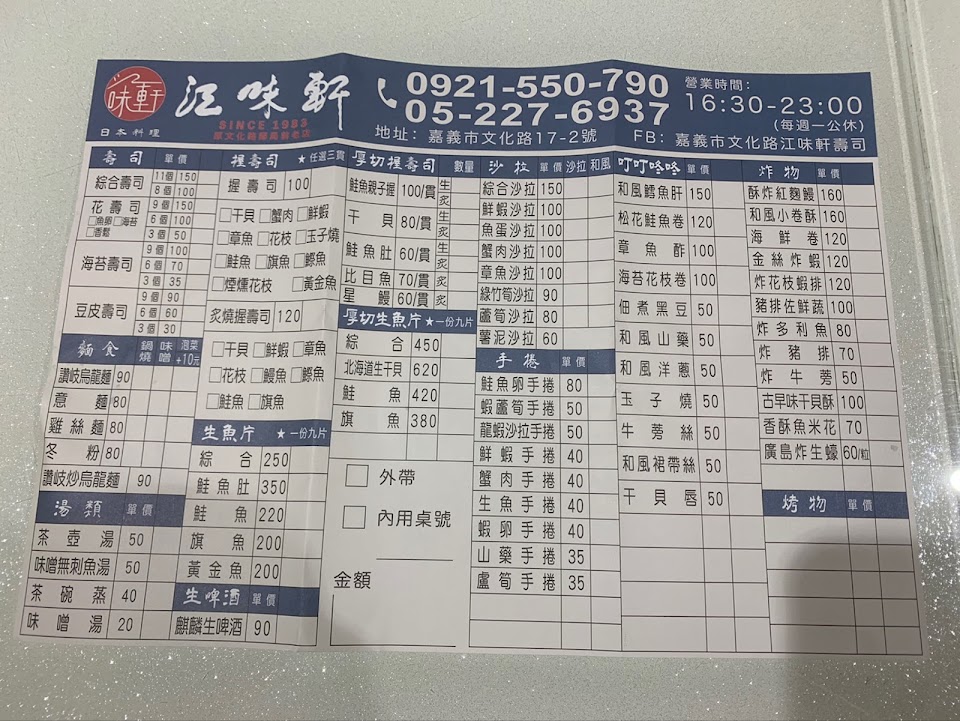 味軒
日本料理
江味軒
SINCE 1983
0921-550-790
05-227-6937
地址：嘉義市文化路17-2號
營業時間：
16:30-23:00
(每週一公休)
FB：嘉義市文化路江味軒壽司
壽司 單價
綜合壽司 11個 150
8個 100
花壽司 9個 150
□魚卵□海苔 6個 100
□香鬆 3個 50
海苔壽司 9個 100
6個 70
3個 35
豆皮壽司 9個 90
6個 60
3個 30
麵食 鍋燒 味噌 泡菜+10元
讚岐烏龍麵 90
意麵 80
雞絲麵 80
冬粉 80
讚岐炒烏龍麵 90
湯類 單價
茶壺湯 50
味噌無刺魚湯 50
茶碗蒸 40
味噌湯 20
握壽司 ★任選三貫
握壽司 100
□干貝 □蟹肉 □鮮蝦
□章魚 □花枝 □玉子燒
□鮭魚 □旗魚 □鰹魚
□煙燻花枝 □黃金魚
炙燒握壽司 120
□干貝 □鮮蝦 □章魚
□花枝 □鰻魚 □鰹魚
□鮭魚 □旗魚
生魚片 ★一份九片
綜合 250
鮭魚肚 350
鮭魚 220
旗魚 200
黃金魚 200
生啤酒 單價
麒麟生啤酒 90
厚切握壽司 數量
鮭魚親子握 100/貫 生 炙
干貝 80/貫 生 炙
鮭魚肚 60/貫 生 炙
比目魚 70/貫 生 炙
星鰻 60/貫
厚切生魚片 ★一份九片
綜合 450
北海道生干貝 620
鮭魚 420
旗魚 380
□ 外帶
□ 內用桌號
金額
沙拉 單價 沙拉 和風
綜合沙拉 150
鮮蝦沙拉 100
魚蛋沙拉 100
蟹肉沙拉 100
章魚沙拉 100
綠竹筍沙拉 90
蘆筍沙拉 80
薯泥沙拉 60
手捲 單價
鮭魚卵手捲 80
蝦蘆筍手捲 50
龍蝦沙拉手捲 50
鮮蝦手捲 40
蟹肉手捲 40
生魚手捲 40
蝦卵手捲 40
山藥手捲 35
盧筍手捲 35
叮叮咚咚 單價
和風鱈魚肝 150
松花鮭魚卷 120
章魚酢 100
海苔花枝卷 100
佃煮黑豆 50
和風山藥 50
和風洋蔥 50
玉子燒 50
牛蒡絲 50
和風裙帶絲 50
干貝唇 50
炸物 單價
酥炸紅麴鰻 160
和風小卷酥 160
海鮮卷 120
金絲炸蝦 120
炸花枝蝦排 120
豬排佐鮮蔬 100
炸多利魚 80
炸豬排 70
炸牛蒡 50
古早味干貝酥 100
香酥魚米花 70
廣島炸生蠔 60/粒
烤物 單價